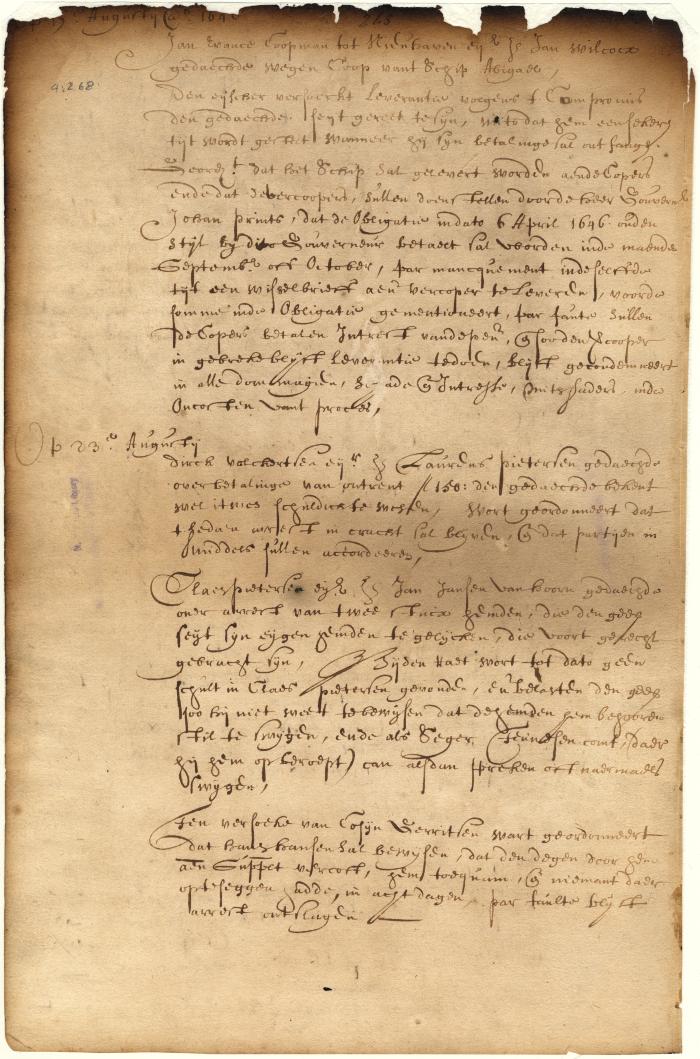 Augusty A° 1646 265
4:268
Jan Evance Coopman tot Nieuhaven eyr ca Jan Wilcocx
gedaechde wegen Coop vant Schip Abigael,
Den eyscher versoeckt Leverantie volgens t Compromis
den gedaechde seyt gereet te syn, mits dat hem een sekere
tijt wordt gestelt wanneer hij syn betalinge sal ontfange.
Geordt. dat het Schip sal gelevert worden aen de Copers
ende dat de vercoopers, sullen doen stellen door de heer Gouverneur
Johan Prints, dat de Obligatie in dato 6 April 1646 ouden
stijl by dito Gouverneur betaelt sal worden inde maende
Septembr oft October, par mancquement inde selffde
tijt een wisselbrieff aen vercoper te Leveren, voorde
somme inde Obligatie gementioneert, par faute sullen
de Copers betalen Intrest vande penn, en soo den vercooper
in gebreke blyft Leverantie te doen, blyft gecondemneert
in alle dommagien, schade en Intresse, mitsgaders inde
Oncosten vant proces,
Op 23en Augusty
Dirck Volchertsen eyr ca Laurens Pietersen gedaechde
over betalinge van ontrent fl 150: den gedaechde bekent
wel itwes schuldich te wesen, wort geordonneert dat
t gedaen arrest in cracht sal blyven, en dat partijen in
middels sullen accorderen,
Claes Pietersen eyr ca Jan Jansen van Hoorn gedaechde
over arrest van twee stucx hemden, die den geds
seyt syn eygen hemden te gelycken, die voort gerecht
gebracht syn, Bijden Raet wort tot dato geen
schult in Claes Pietersen gevonden, en belasten den geds
soo hij niet weet te bewysen dat de hemden hem behooren
stil te swygen, ende als Seger Teunesen comt, (daer
hij hem op beroept) can alsdan spreken oft naermaels
swygen,
Ten versoecke van Cosyn Gerritsen wart geordonneert
dat hans hansen sal bewysen, dat den degen door hem
aen Supplt vercoft, hem toequam, en niemant daer
op te seggen hadde, in acht dagen, par faulte blyft
arrest ontslagen